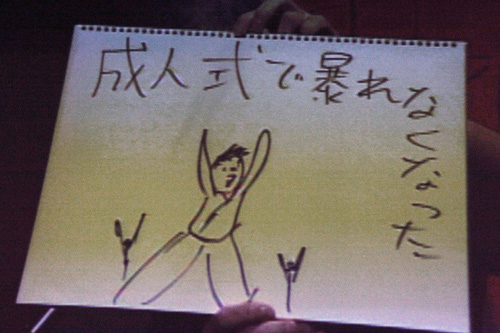 成人式で暴れなくなった